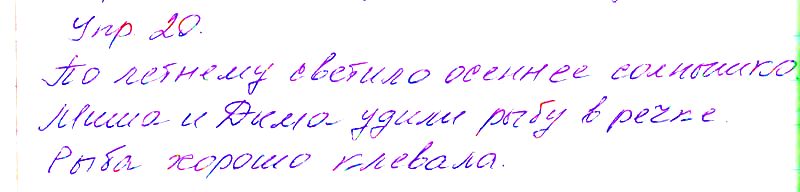 Упр 20.
По летнему светило осеннее солнышко
Миша и Дима удили рыбу в речке.
Рыба хорошо клевала.